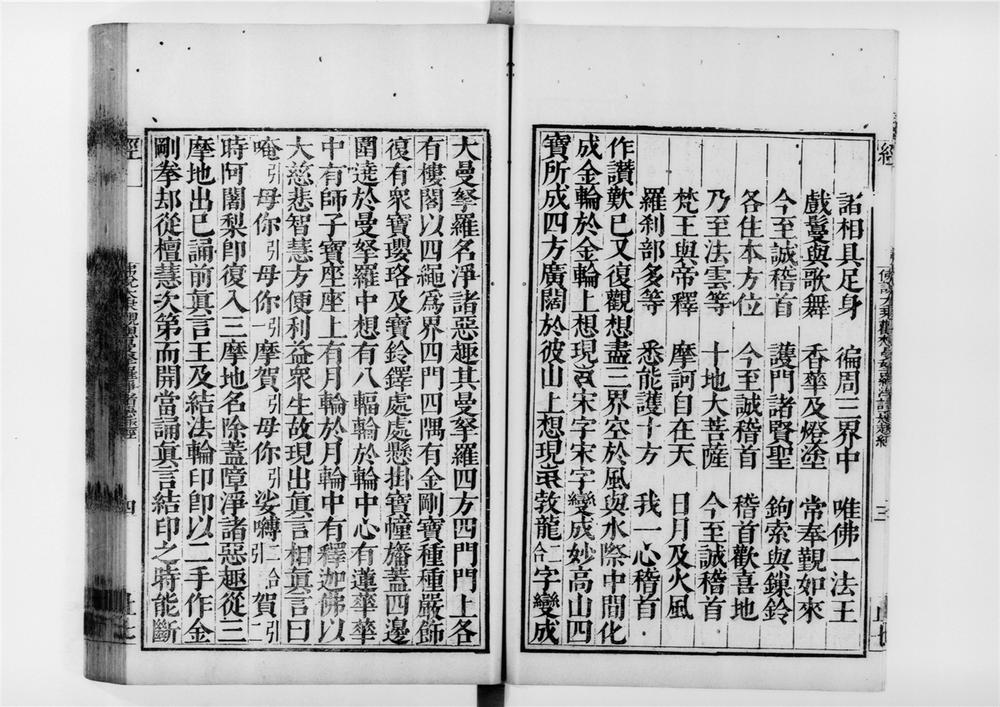 諸相具足身 徧周三界中 唯佛一法王
戲鬘與歌舞 香華及燈塗 常奉覲如來
今至誠稽首 護門諸賢聖 鉤索與鏁鈴
各住本方位 今至誠稽首 稽首歡喜地
乃至法雲等 十地大菩薩 今至誠稽首
梵王與帝釋 摩訶自在天 日月及火風
羅刹部多等 悉能護十方 我一心稽首
作讚歎已又復觀想盡三界空於風與水際中間化
成金輪於金輪上想現宋字宋字變成妙高山四
寶所成四方廣闊於彼山上想現敦龍二合字變成
大曼拏羅名淨諸惡趣其曼拏羅四方四門門上各
有樓閣以四繩爲界四門四隅有金剛寶種種嚴飾
復有衆寶瓔珞及寶鈴鐸處處懸掛寶幢旛蓋四邊
圍遶於曼拏羅中想有八輻輪於輪中心有蓮華華
中有師子寶座座上有月輪於月輪中有釋迦佛以
大慈悲智慧方便利益衆生故現出眞言相眞言曰
唵引母你引母你一摩賀引母你娑嚩二合引賀引二
時阿闍梨即復入三摩地名除蓋障淨諸惡趣從三
摩地出已誦前眞言王及結法輪印即以二手作金
剛拳却從檀慧次第而開當誦眞言結印之時能斷
經
四